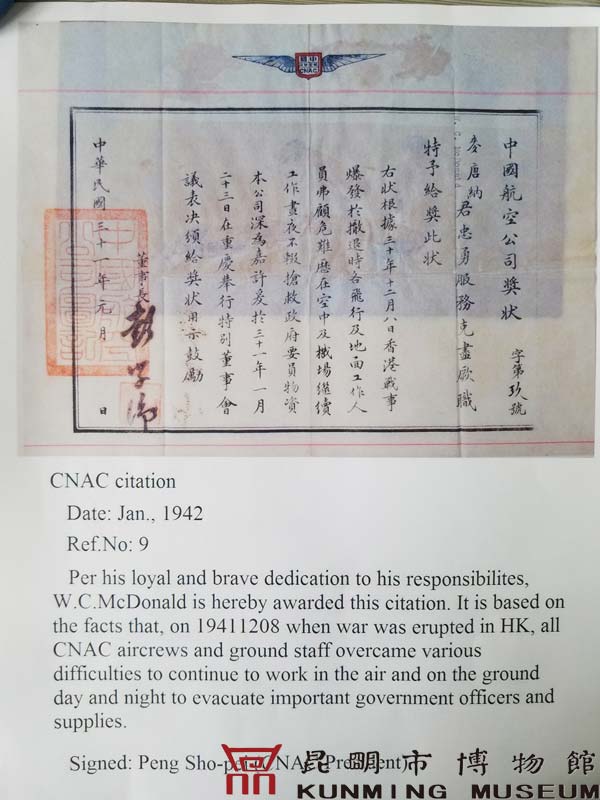 CNAC
中國航空公司獎狀 字第玖號
麥唐納 君忠勇服務克盡厥職
特予給獎此狀
右狀根據三十年十二月八日香港戰事
爆發於撤退時各飛行及地面工作人
員弗顧危難歷在空中及機場繼續
工作晝夜不輟搶救政府要員物資
本公司深為嘉許爰於三十一年一月
二十三日在重慶舉行特別董事會
議表決頒給獎狀用示鼓勵
董事長 彭学沛
中華民國三十一年元月 日
CNAC citation
Date: Jan., 1942
Ref.No: 9
Per his loyal and brave dedication to his responsibilites,
W.C.McDonald is hereby awarded this citation. It is based on
the facts that, on 19411208 when war was erupted in HK, all
CNAC aircrews and ground staff overcame various
difficulties to continue to work in the air and on the ground
day and night to evacuate important government officers and
supplies.
Signed: Peng Sho-pei (CNAC President)
昆明市博物館
KUNMING MUSEUM